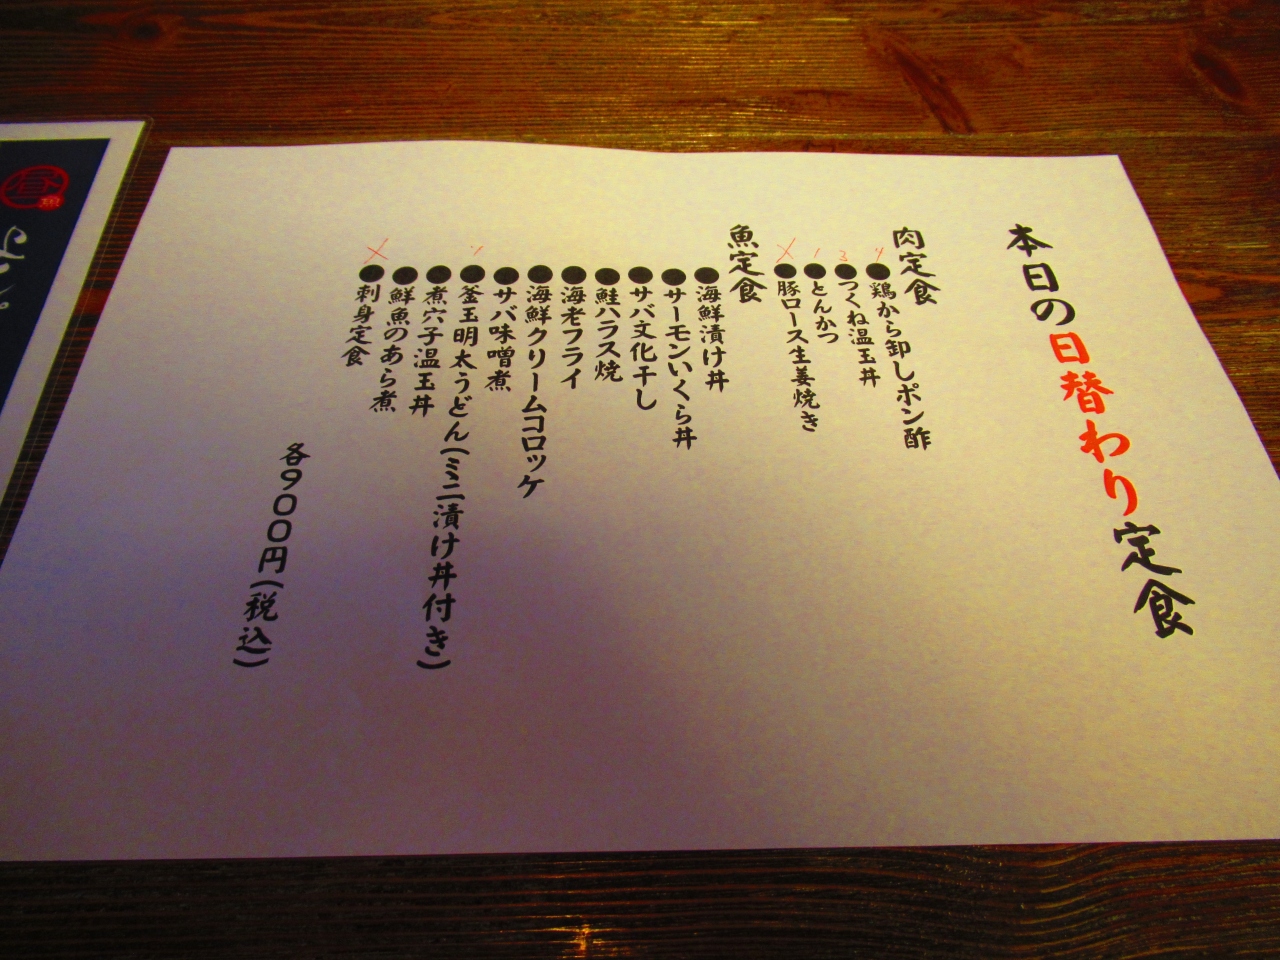 本日の日替わり定食
肉定食
4
●鶏から卸しポン酢
3
●つくね温玉丼
1
●とんかつ
×
●豚ロース生姜焼き
魚定食
●海鮮漬け丼
●サーモンいくら丼
●サバ文化干し
●鮭ハラス焼
●海老フライ
●海鮮クリームコロッケ
●サバ味噌煮
●釜玉明太うどん(ミニ漬け丼付き)
●煮穴子温玉丼
●鮮魚のあら煮
×
●刺身定食
各900円(税込)